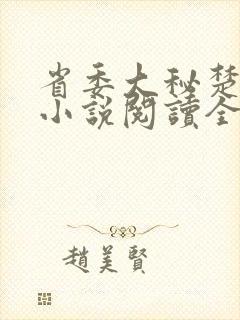 省委大秘楚
小說閱讀全
趙美賢